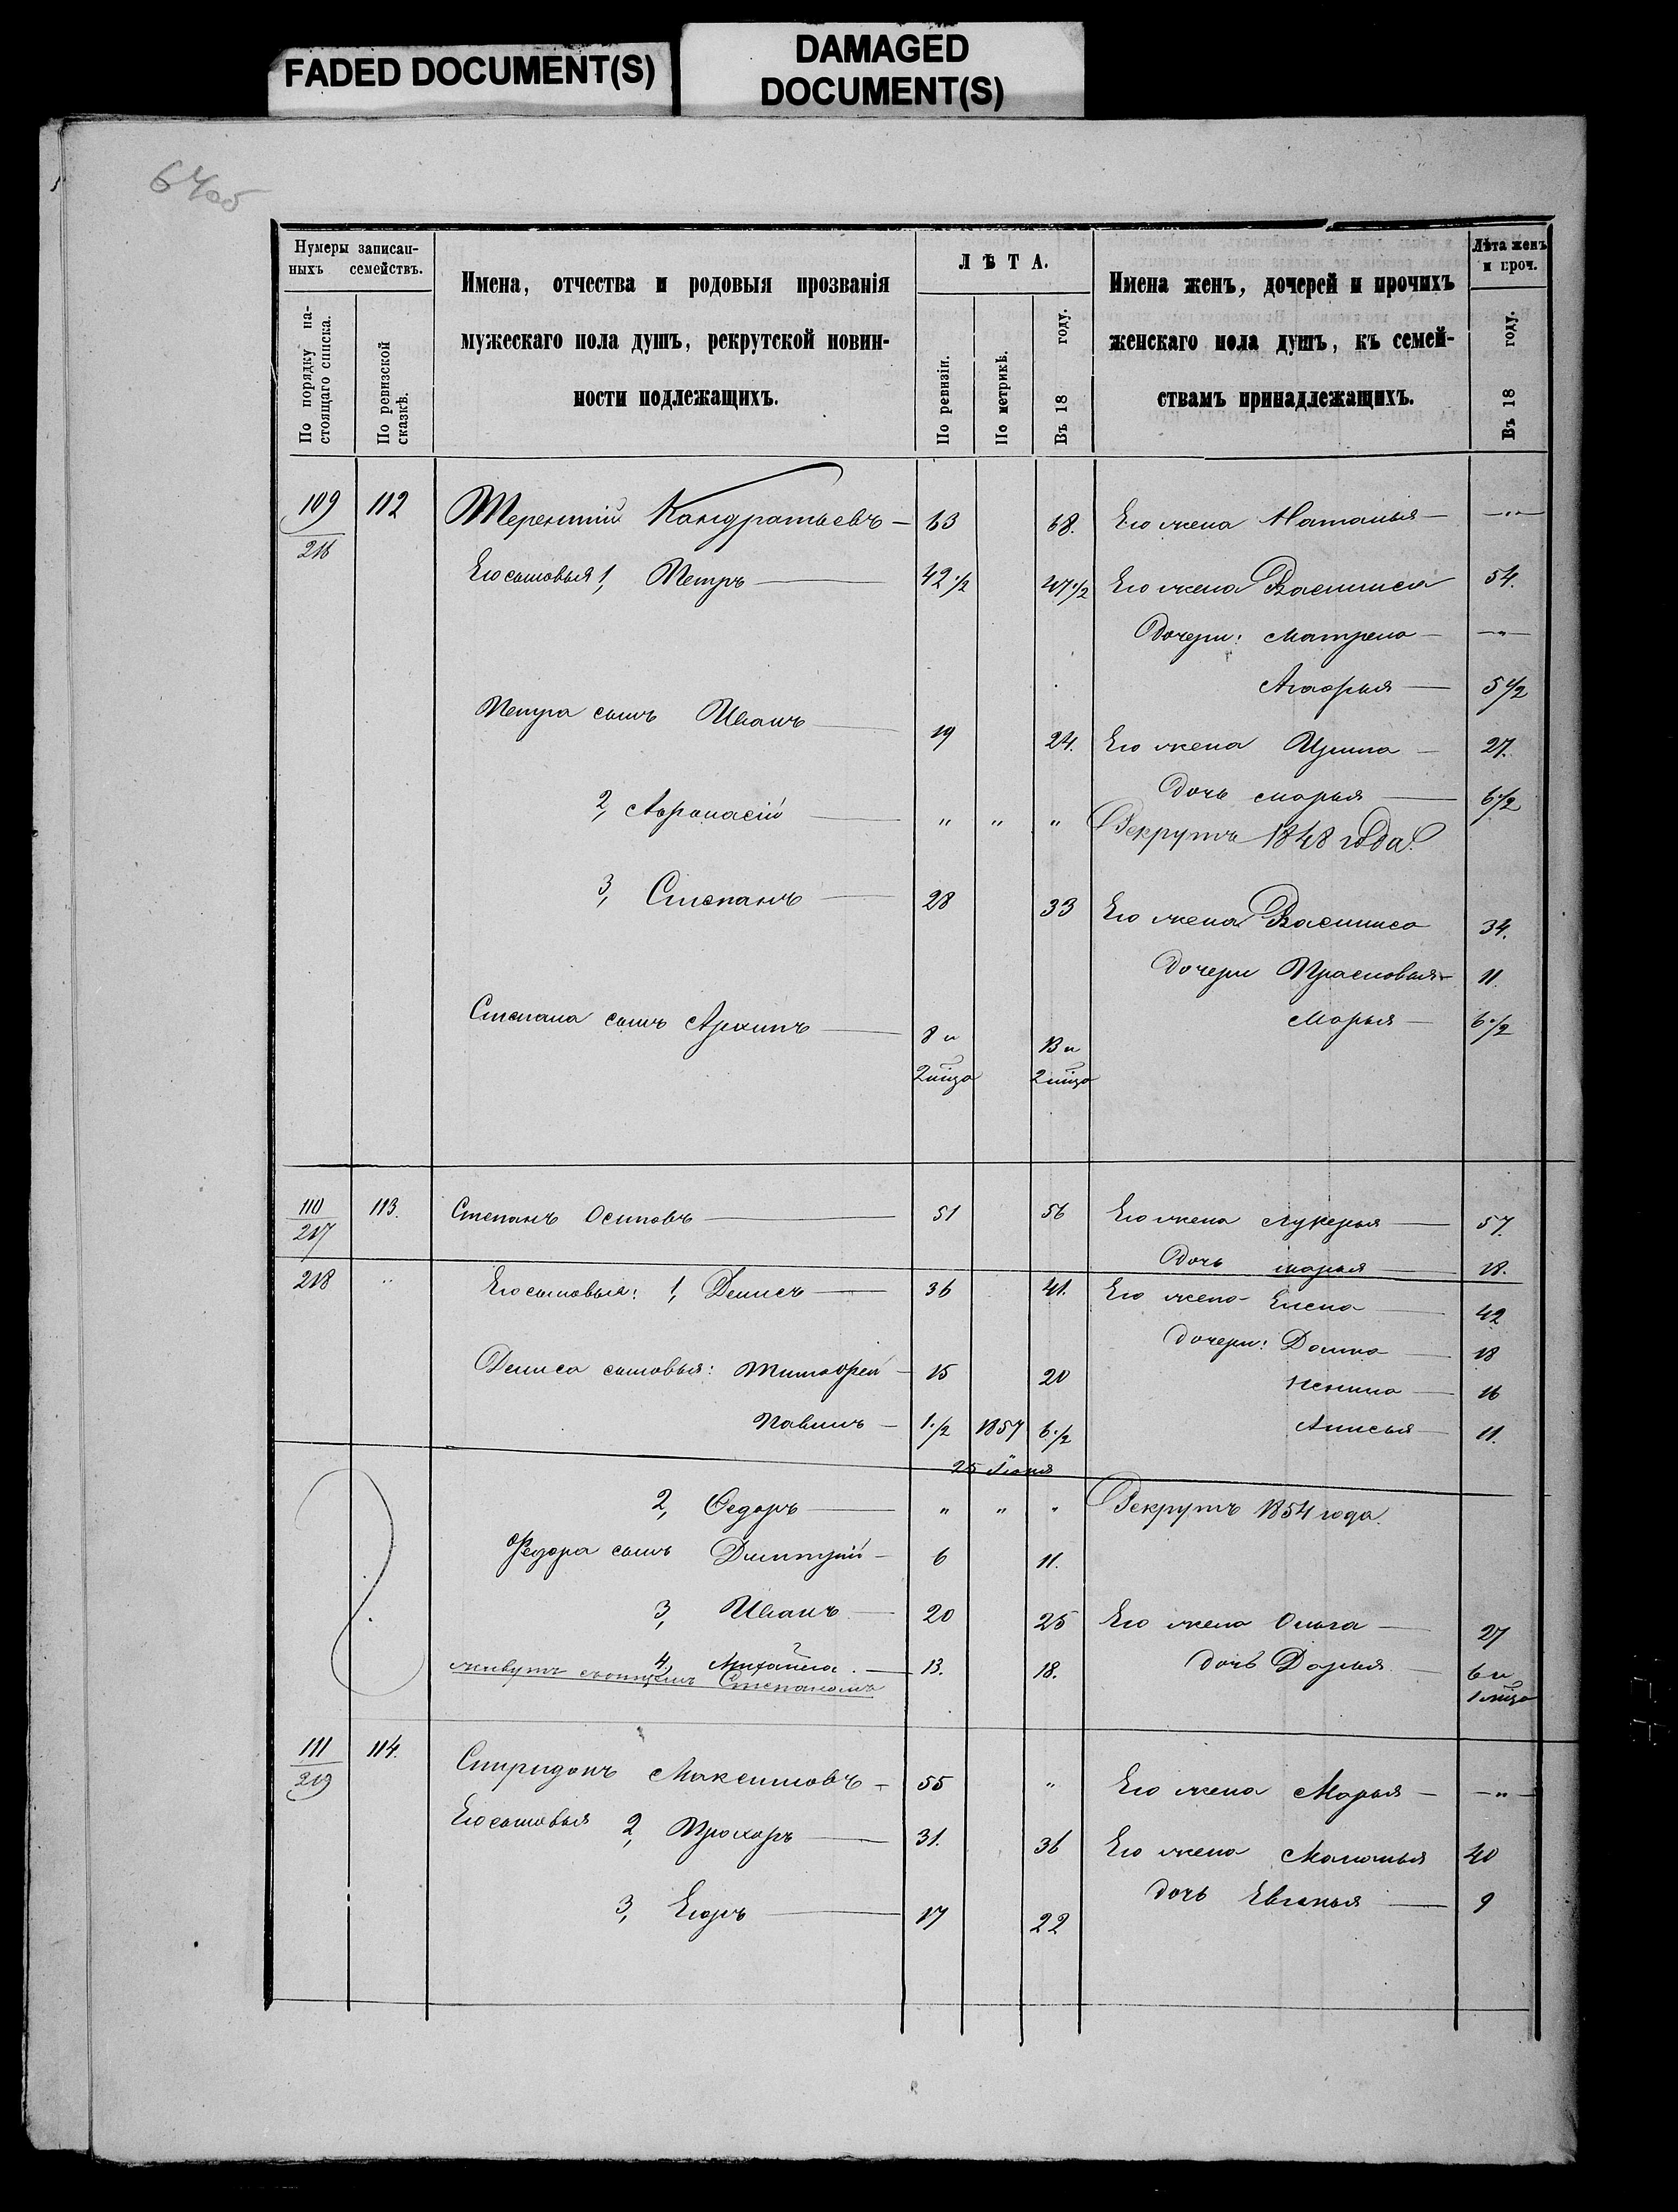 FADED DOCUMENT(S)
DAMAGED
DOCUMENT(S)
64об
Нумеры записан-
ныхъ семействъ.
По порядку на-
стоящаго списка.
По ревизской
сказкѣ.
Имена, отчества и родовыя прозванія
мужескаго пола душъ, рекрутской повин-
ности подлежащихъ.
ЛѢТА.
По ревизіи.
По метрикѣ.
Въ 18 году.
Имена женъ, дочерей и прочихъ
женскаго пола душъ, къ семей-
ствамъ принадлежащихъ.
Лѣта женъ
и проч.
Въ 18 году.
109 112 Терентій Кандратьевъ — 63 68. Его жена Наталья — — „ —
216
Его сыновья 1, Петръ — 42½ 47½ Его жена Василиса 54.
Дочери: Матрена — — „ —
Агафья — 5½
Петра сынъ Иванъ — 19 24. Его жена Ирина — 27.
Дочь Марья — 6½
2, Афонасій — „ „ „ Рекрутъ 1848 года.
3, Степанъ — 28 33 Его жена Василиса 34.
Дочери Прасковья — 11.
Степана сынъ Архипъ — 8 и 13 и Марья — 6½
2 мца 2 мца
110 113. Степанъ Осиповъ — 51 56 Его жена Лукерья — 57.
217
Дочь Марья — 18.
218 „ Его сыновья: 1, Денисъ — 36 41. Его жена Елена — 42
Дочери: Домна — 18
Дениса сыновья: Тимофей — 15 20
Ненила — 16
Павелъ — 1½ 1857 6½ Анисья — 11.
25 Іюня
2, Федоръ — „ „ „ Рекрутъ 1854 года.
Федора сынъ Дмитрій — 6 11.
3, Иванъ — 20 25 Его жена Ольга — 27
4, Михайла — 13. 18. Дочь Дарья — 6 и
живутъ съ отцемъ Степаномъ 1 мца
111 114. Спиридонъ Максимовъ — 55 „ Его жена Марья — — „ —
219
Его сыновья 2, Прохоръ — 31. 36 Его жена Маланья 40
Дочь Евгенья — 9
3, Егоръ — 17 22